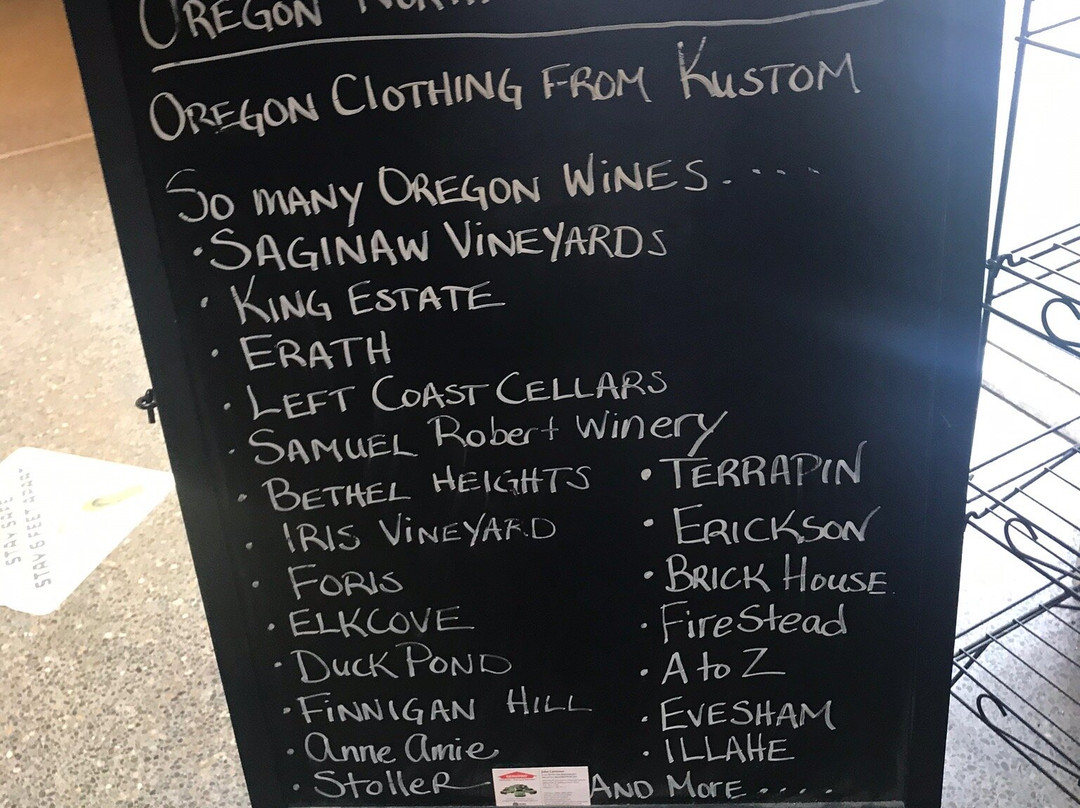 OREGON
OREGON CLOTHING FROM KUSTOM
SO MANY OREGON WINES.....
• SAGINAW VINEYARDS
• KING ESTATE
• ERATH
• LEFT COAST CELLARS
• SAMUEL Robert Winery
• BETHEL HEIGHTS
• IRIS VINEYARD
• FORIS
• ELKCOVE
• DUCK POND
• FINNIGAN HILL
• Anne Amie
• StolleR
• TERRAPIN
• ERICKSON
• BRICK HOUSE
• FireStead
• A to Z
• EVESHAM
• ILLAHE
AND MORE.....
STAY SAFE
STAY 6 FEET APART